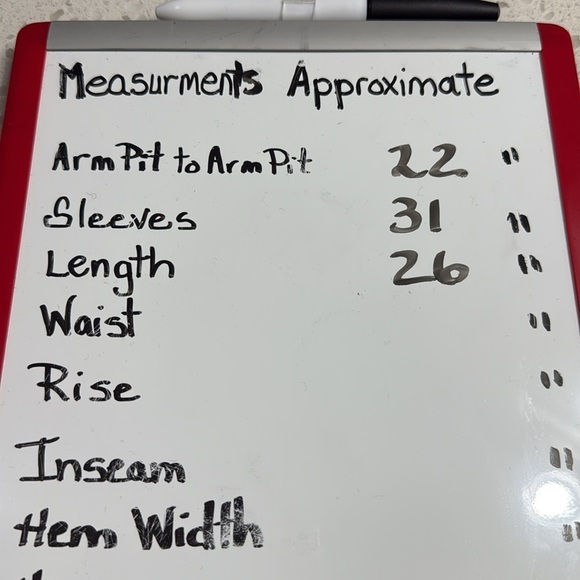 Measurments Approximate
ArmPit to ArmPit 22 "
Sleeves 31 "
Length 26 "
Waist "
Rise "
Inseam "
Hem Width "